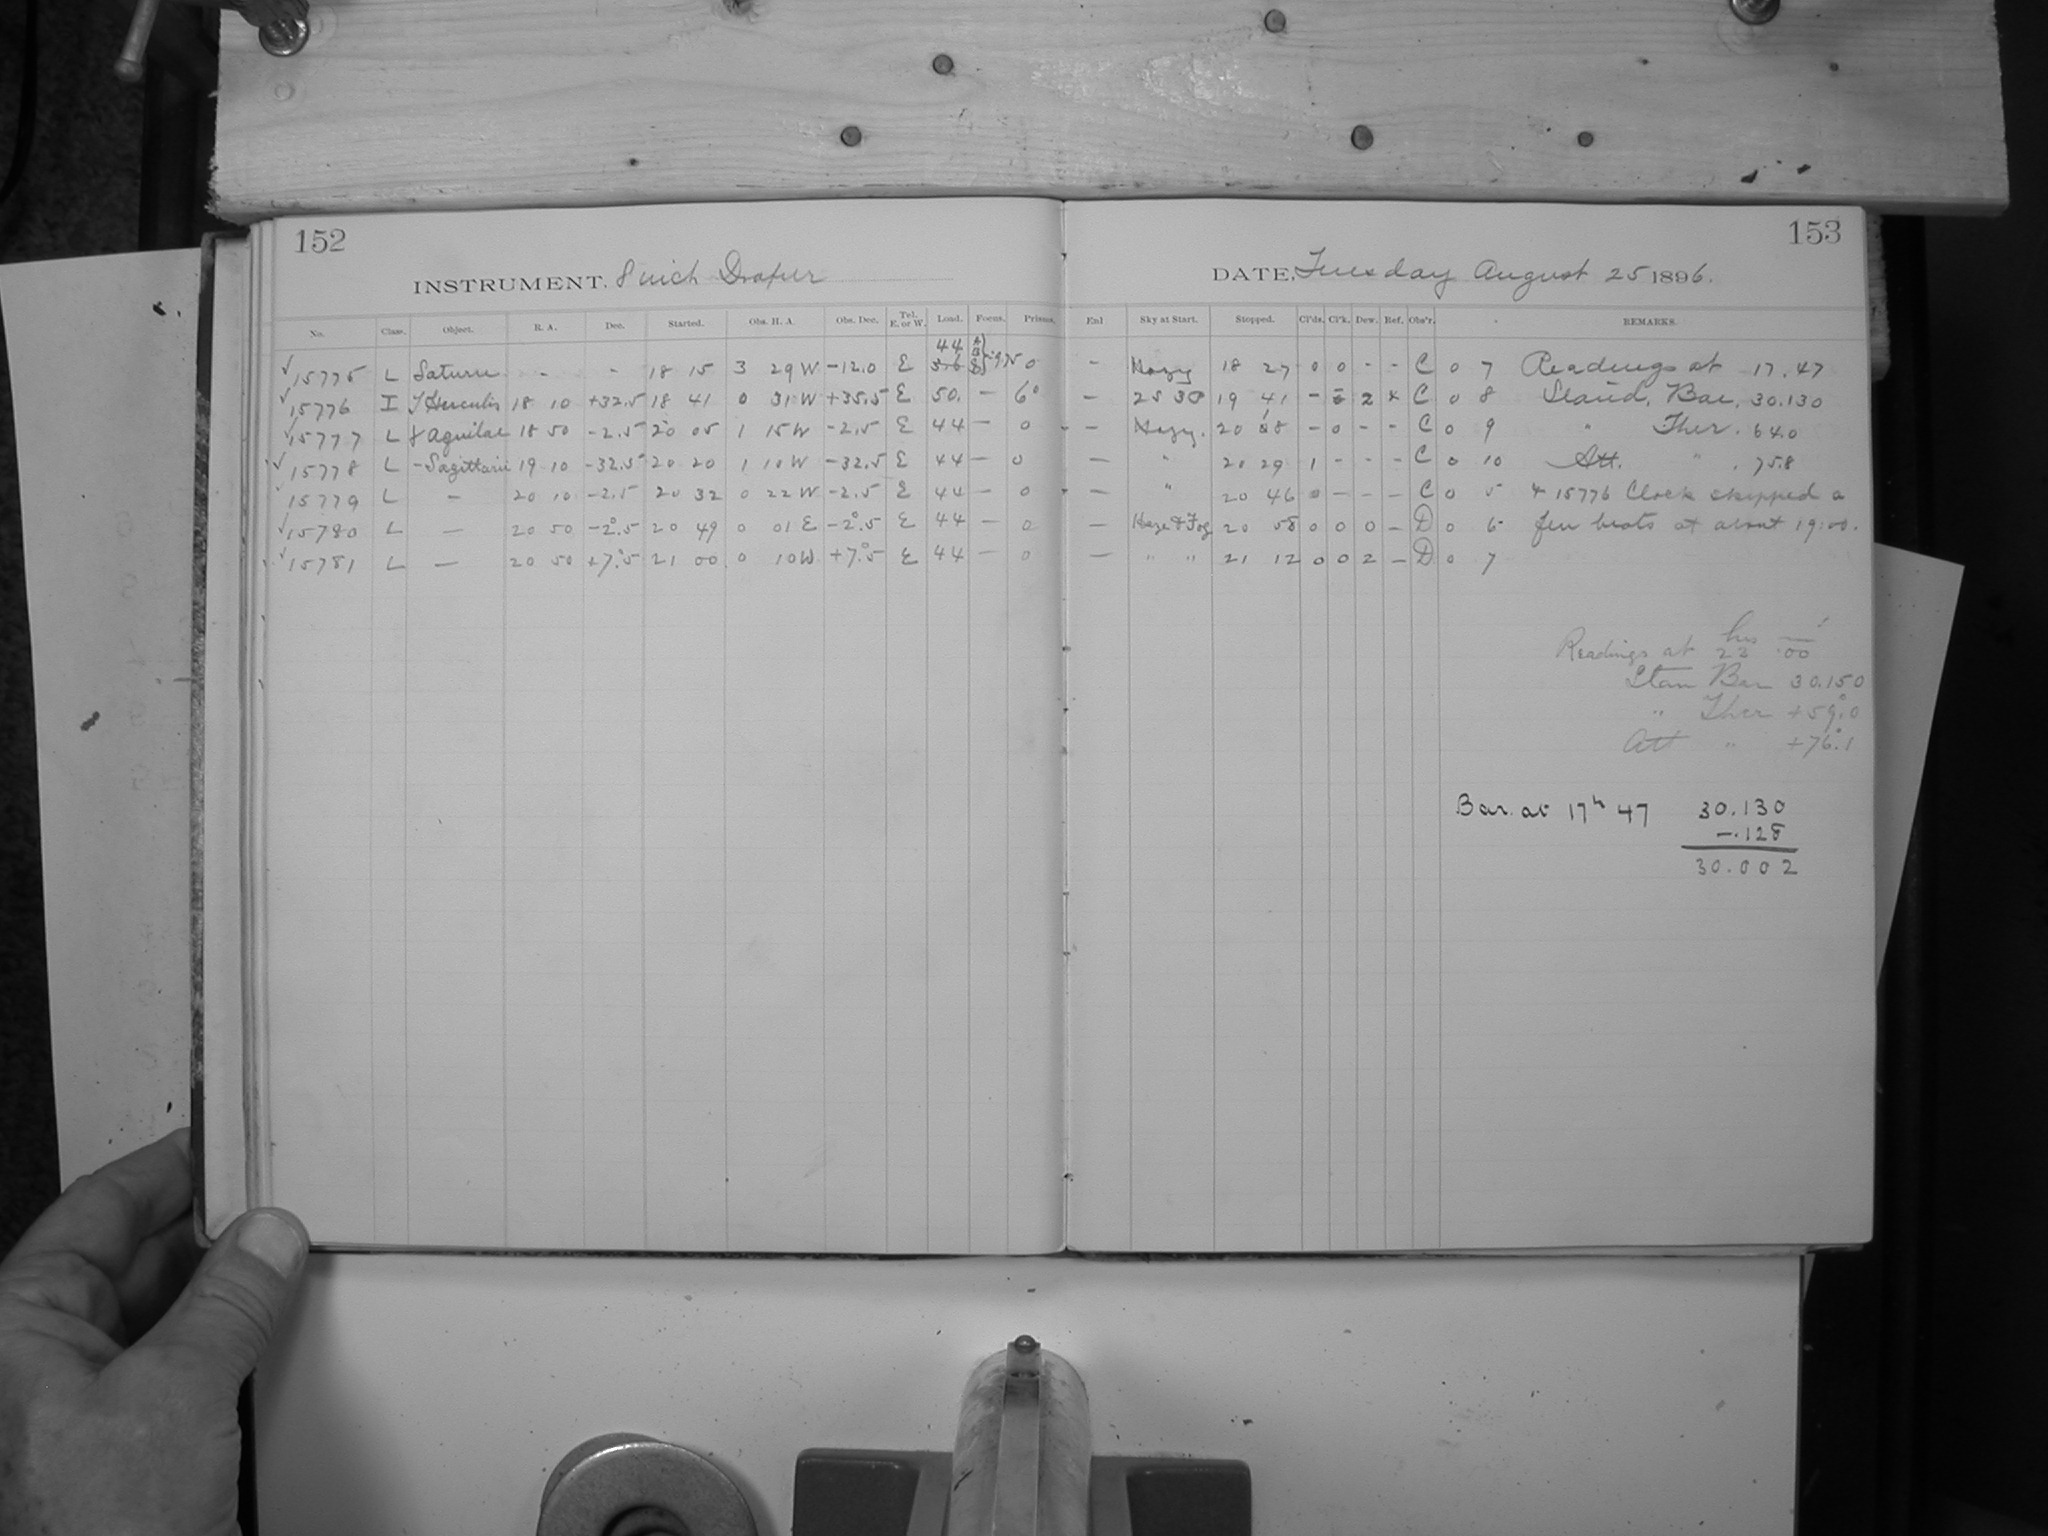 152
INSTRUMENT. 8 inch Draper
No. Class. Object. R. A. Dec. Started. Obs. H. A. Obs. Dec. Tel. E. or W. Load. Focus. Prisms.
44
15775 L Saturn - - 18 15 3 29 W -12.0 E 0
15776 I Herculis 18 10 +32.5 18 41 0 31 W +35.5 E 50. - 6
15777 L Aquilae 18 50 -2.5 20 05 1 15 W -2.5 E 44 - 0
15778 L - Sagittarii 19 10 -32.5 20 20 1 10 W -32.5 E 44 - 0
15779 L - 20 10 -2.5 20 32 0 22 W -2.5 E 44 - 0
15780 L - 20 50 -2°.5 20 49 0 01 E -2°.5 E 44 - 0
15781 L - 20 50 +7°.5 21 00 0 10 W +7°.5 E 44 - 0
153
DATE, Tuesday August 25 1896.
Enl Sky at Start. Stopped. Cl'ds. Cl'k. Dew. Ref. Obs'r. REMARKS.
- Hazy 18 27 0 0 - - C 0 7 Readings at 17.47
- 19 41 - 2 x C 0 8 Stand. Bar. 30.130
- Hazy. 20 - 0 - - C 0 9 " Ther. 64.0
- " 20 29 1 - - - C 0 10 Att. " . 75.8
- " 20 46 0 - - - C 0 5 x 15776 Clock skipped a
- Haze & Fog 20 58 0 0 0 - D 0 6 few beats at about 19:00.
- " " 21 12 0 0 2 - D 0 7
Readings at 22 hrs 00
Stan Bar 30.150
" Ther +59°.0
Att " +76°.1
Bar. at 17h 47 30.130
-.128
30.002